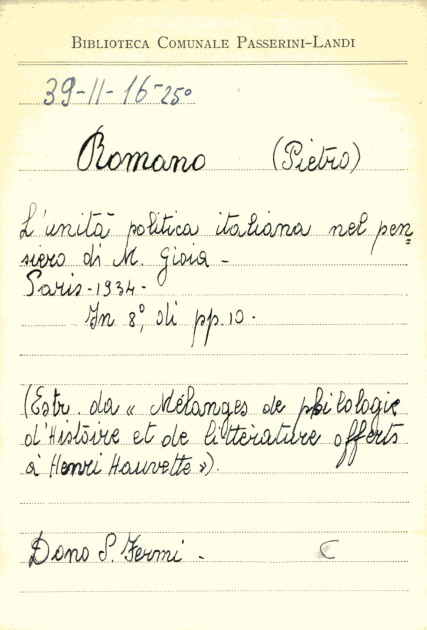 BIBLIOTECA COMUNALE PASSERINI-LANDI
39-11-16-25°
Romano (Pietro)
L'unità politica italiana nel pen=
siero di M. Gioia -
Paris - 1934 -
In 8°, di pp. 10.
(Estr. da « Mélanges de philologie
d'Histoire et de littérature offerts
à Henri Hauvette »).
Dono S. Fermi - C